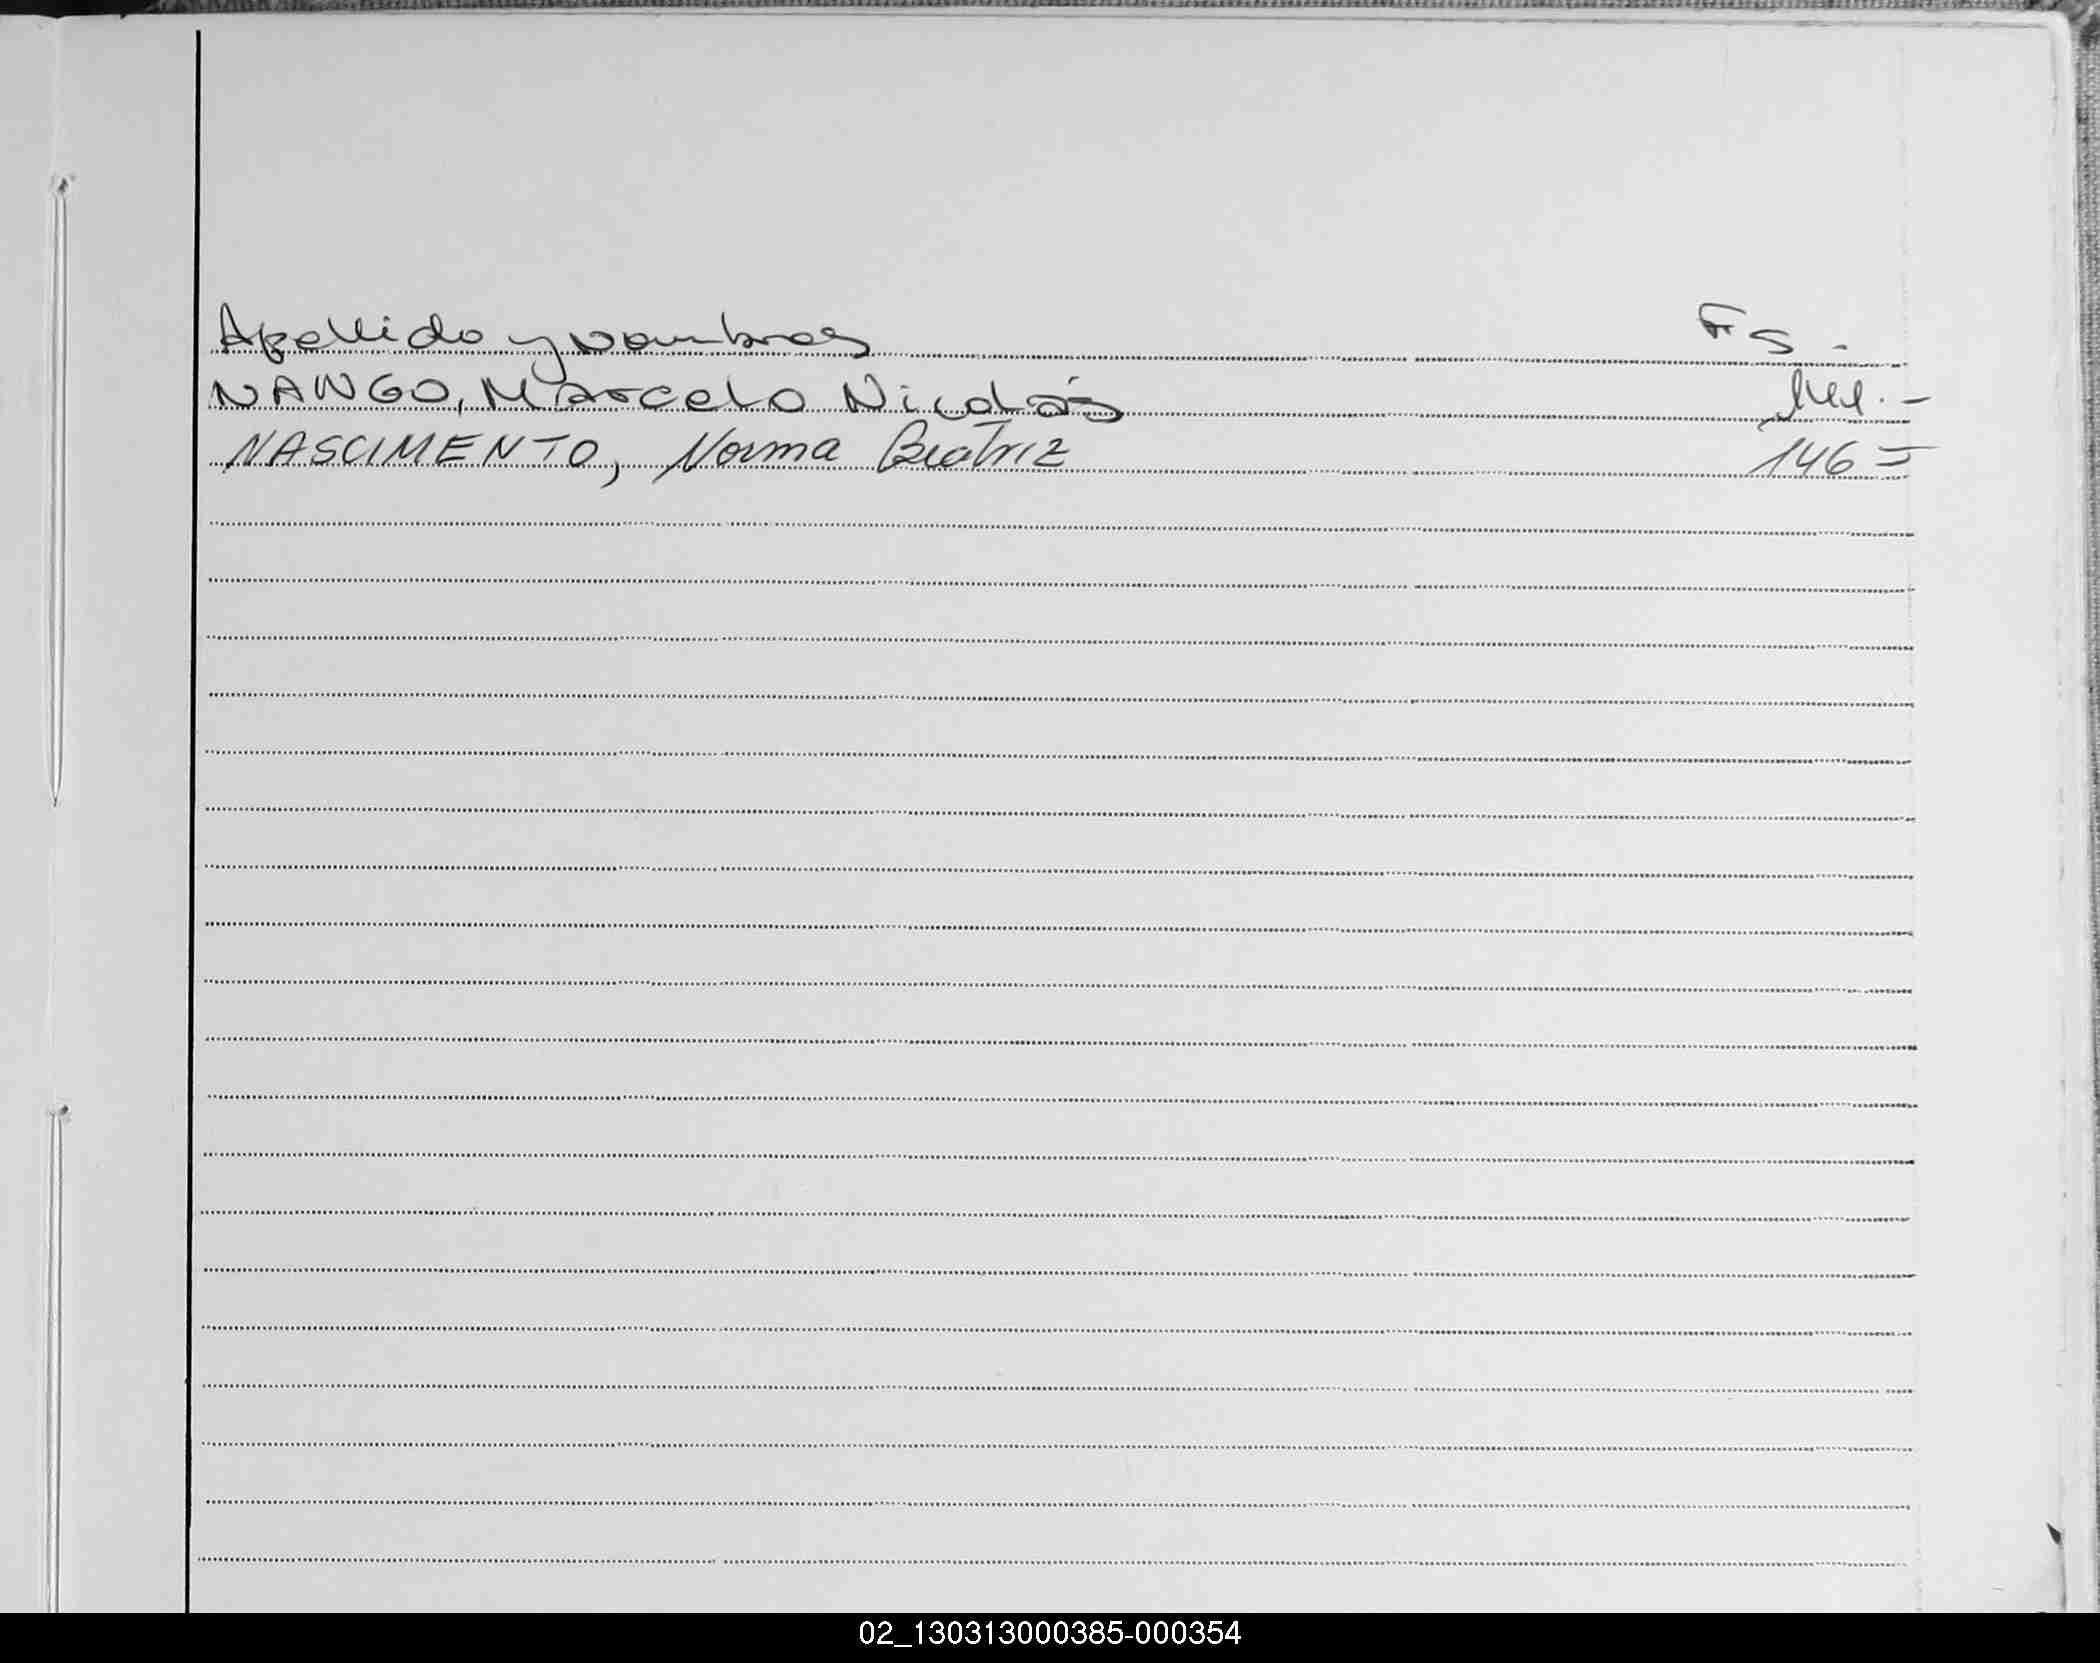 Apellido y nombres Fs.
NANGO, Marcelo Nicolás
NASCIMENTO, Norma Beatriz 146=
02_130313000385-000354